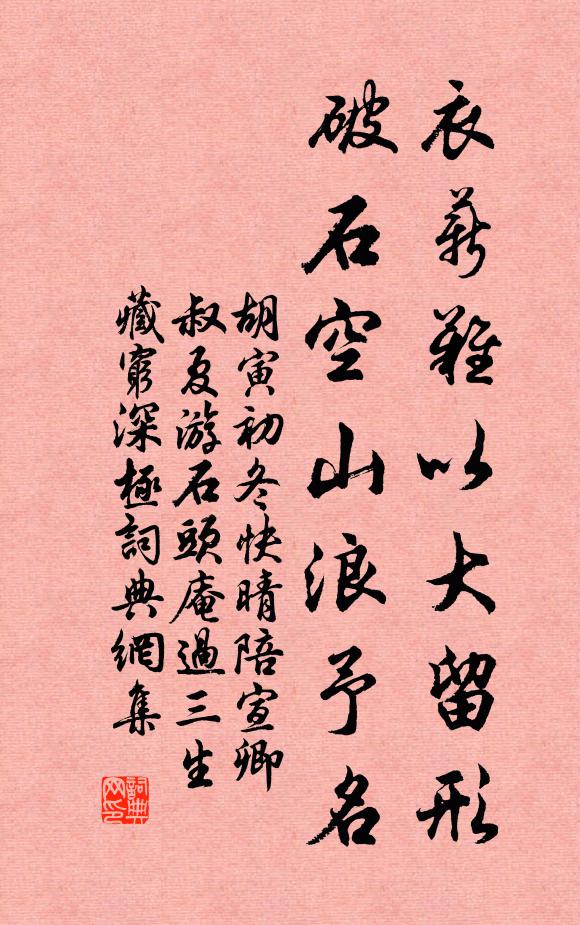 衣薪難以大留形
破石空山浪予名
胡寅初冬快晴陪宣卿
叔夏游石頭庵過三生
藏窮深極詞典網集
詞典网印